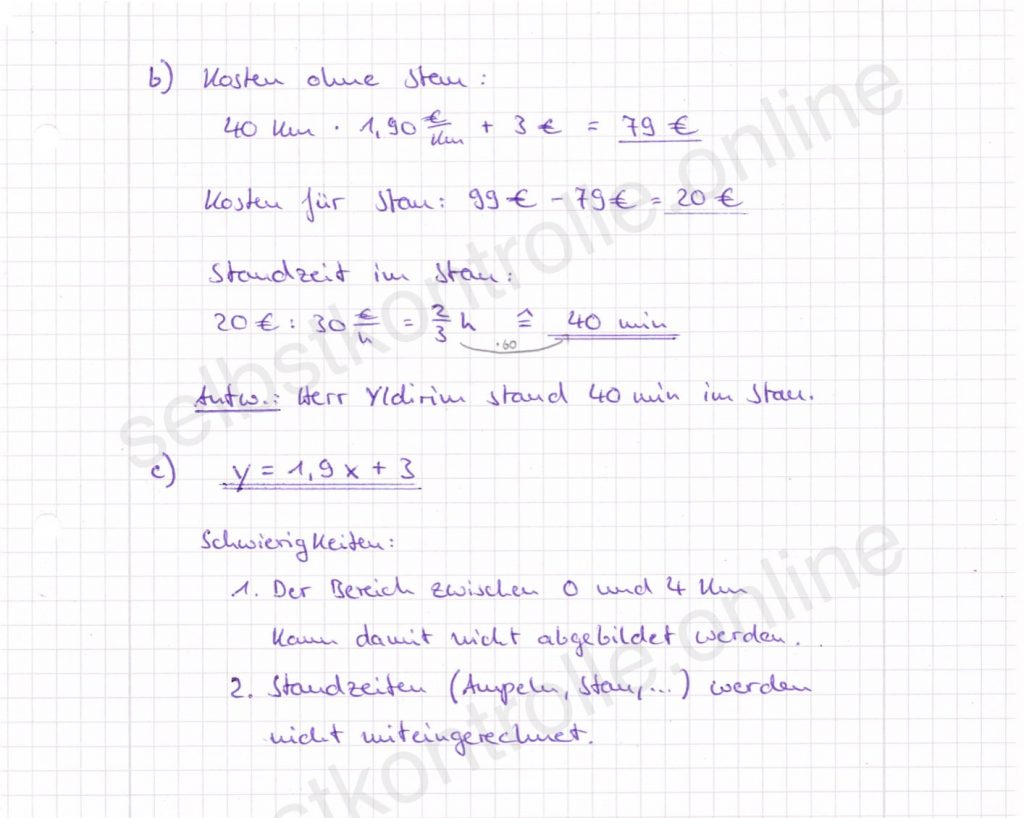 b) Kosten ohne Stau:
40 km · 1,90 €/km + 3 € = 79 €
Kosten für Stau: 99 € - 79 € = 20 €
Standzeit im Stau:
20 € : 30 €/h = 2/3 h ≙ 40 min
·60
Antw.: Herr Yldirim stand 40 min im Stau.
c) y = 1,9 x + 3
Schwierigkeiten:
1. Der Bereich zwischen 0 und 4 km
kann damit nicht abgebildet werden.
2. Standzeiten (Ampeln, Stau, ...) werden
nicht miteingerechnet.
selbstkontrolle.online
selbstkontrolle.online